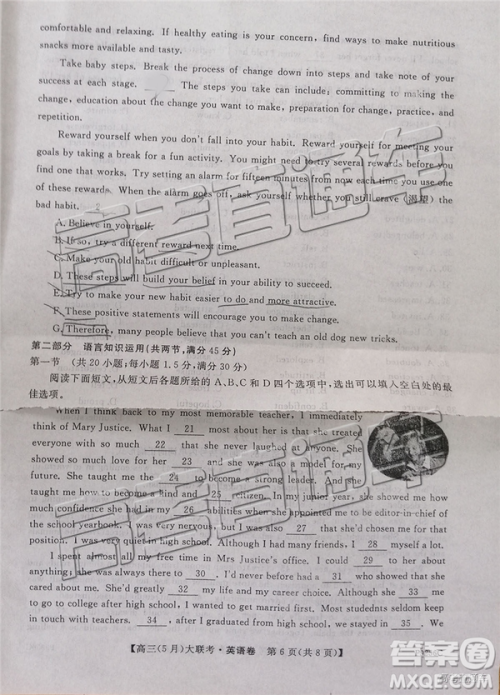 comfortable and relaxing. If healthy eating is your concern, find ways to make nutritious
snacks more available and tasty.
Take baby steps. Break the process of change down into steps and take note of your
success at each stage. These steps you can take include: committing to making the
change, education about the change you want to make, preparation for change, practice, and
repetition.
Reward yourself when you don't fall into your habit. Reward yourself for meeting your
goals by taking a break for a fun activity. You might need to try several rewards before you
find one that works. Try setting an alarm for fifteen minutes from when you use one
of these rewards. When the alarm goes off, ask yourself whether you still crave (渴望) the
bad habit.
A. Believe in yourself.
B. If so, try a different reward next time.
C. Make your old habit difficult or unpleasant.
D. These steps will build your belief in your ability to succeed.
E. Try to make your new habit easier to do and more attractive.
F. These positive statements will encourage you to make change.
G. Therefore, many people believe that you can't teach an old dog new tricks.
第二部分 语言知识运用(共两节,满分 45 分)
第一节 (共 20 小题;每小题 1.5 分,满分 30 分)
阅读下面短文,从短文后各题所给的 A、B、C 和 D 四个选项中,选出可以填入空白处的最
佳选项。
When I think back to my most memorable teacher, I immediately
think of Mary Justice. What I 21 most about her is that she treated
everyone with so much 22 that she never laughed at anyone. She
showed so much love for her 23 and wanted us all to succeed in
life. She taught me the 24 to become a strong leader. And she
taught me to become a kind and 25 citizen. In my junior year, she showed me how
much confidence she had in my 26 abilities when she wanted me to be editor-in-chief of
the school yearbook. I was very nervous, but I was also 27 that she'd chosen me for that
position. I was very quiet in high school. Although I had many friends, I 28 myself a lot.
I spent almost all my free time in Mrs Justice's office. I could 29 to her about
anything; she was always there to 30. I'd never before had a 31 who showed me that
she cared. She greatly 32 my life and made a difference. Although she 33 me to want
to go on to college after high school, she inspired me most. Most studetnts seldom keep
in touch with their 34 after they graduated from high school, as we stayed in 35. We
【高三(5 月)大联考·英语卷 第 6 页(共 8 页)】
高考直通车
高考直通车
答案圈
MXQE.COM